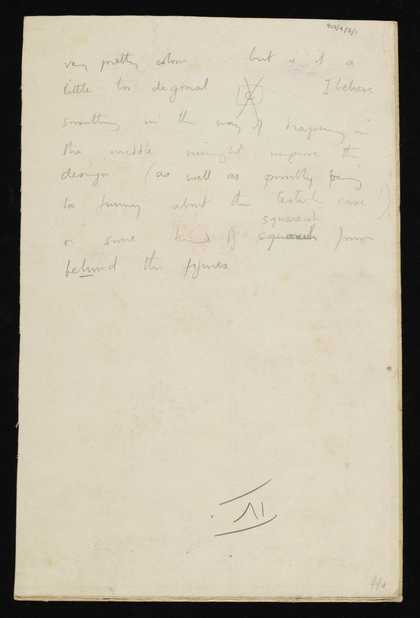 very pretty colour but is it a
little too diagonal I believe
something in the way of drapery in
the middle might improve the
design (as well as possibly being
too funny about the
squareish
or some kind of squareish form
behind the figures
VI